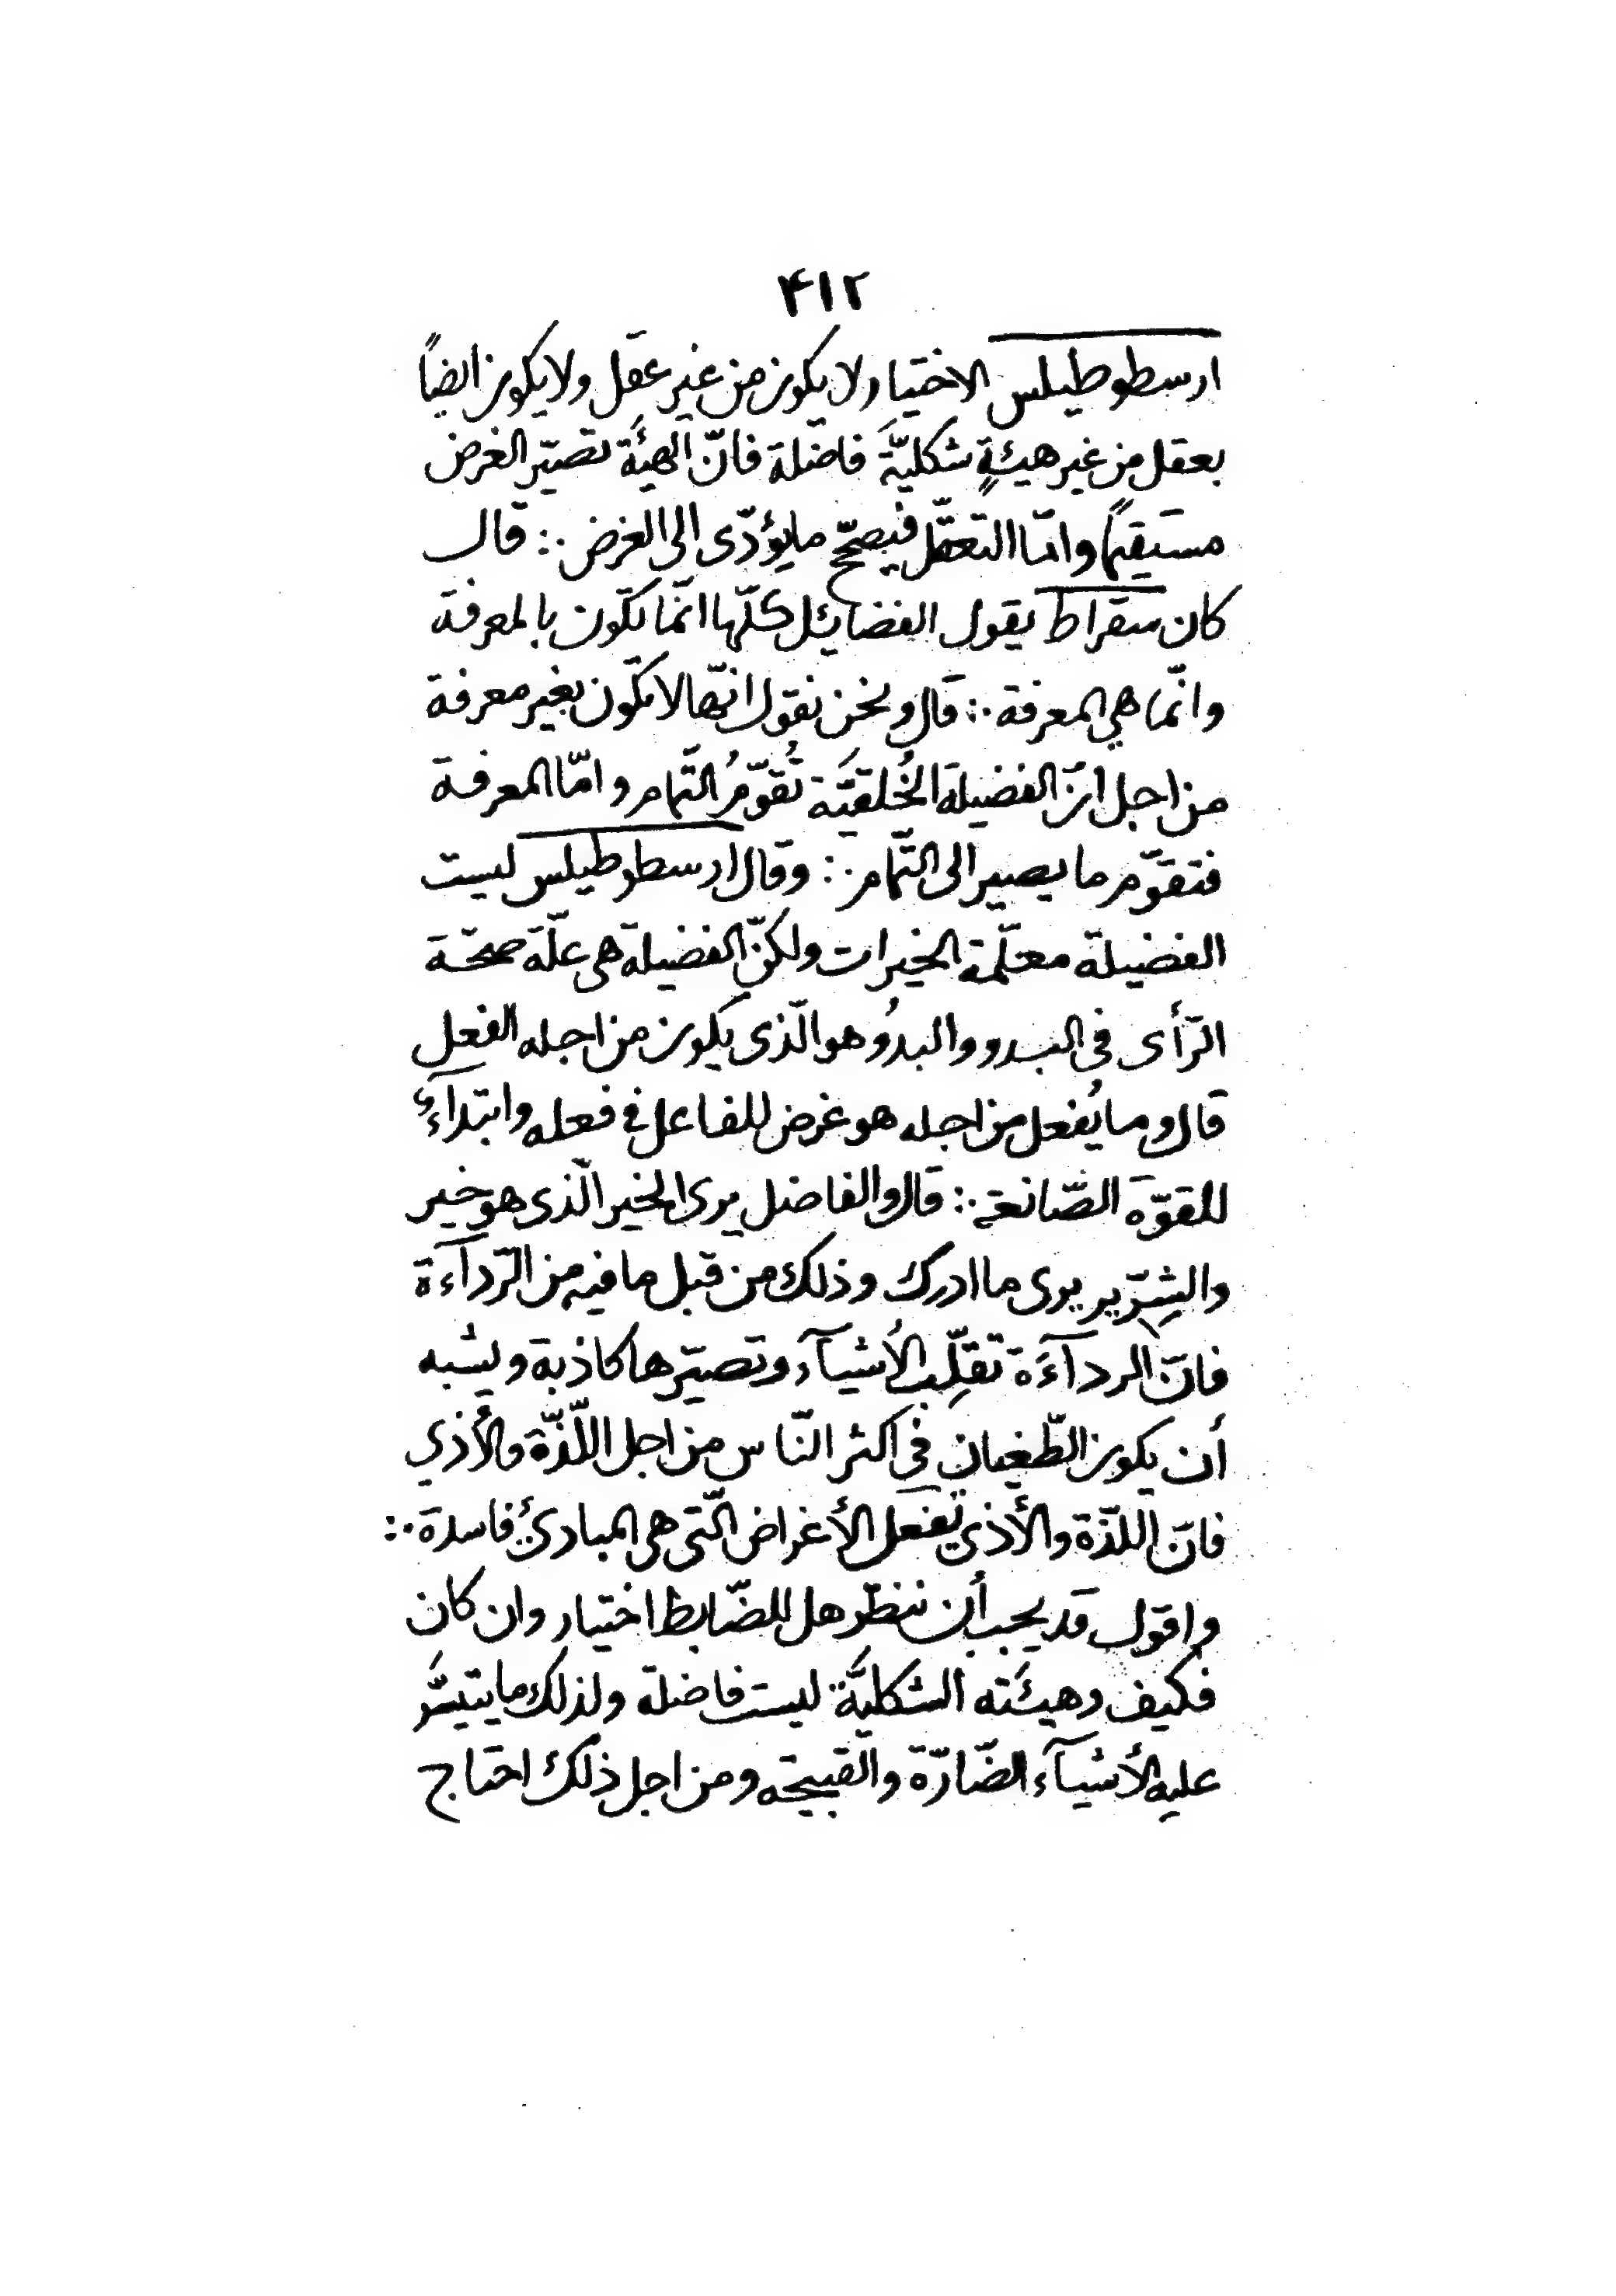 ۴۱۲
ارسطوطيلس الاختيار لا يكون من غير عقل ولا يكون ايضاً
بعقل من غير هيئةٍ شكليّةَ فاضلة فانّ الهيئَة تصيّر الغرض
مستقيماً وامّا التعقّل فيصحّح ما يؤدّى الى الغرض ∴ قال
كان سقراط يقول الفضايئل كلّها انّما تكون بالمعرفة
وانّما هي المعرفة ∴ قال ونحن نقول انّها لا تكون بغير معرفة
من اجل انّ الفضيلة الخُلقيَّة تُقوّمُ التّمام وامّا المعرفة
فتقوّم ما يصير الى التّمام ∴ وقال ارسطوطيلس ليست
الفضيلة معلّمة الخيرات ولكنّ الفضيلة هى علّة صحّة
الرّأى فى البدو والبدوُ هو الّذى يكون من اجله الفعل
قال وما يُفعل من اجله هو غرض للفاعل في فعله وابتداءٌ
للقوّة الصّانعة ∴ قال والفاضل يرى الخير الّذى هو خير
والشِرّير يرى ما ادرك وذلك من قبل ما فيه من الرّدآءة
فانّ الردآءَة تقلِّب الأشيآء وتصيّرها كاذبة ويشبه
أن يكون الطّغيان في اكثر النّاس من اجل اللّذّة والأذي
فانّ اللّذة والأذي تفعل الأغراض الّتى هى المباديُ فاسدة ∴
واقول قد يجب أن ننظر هل للضّابط اختيار وان كان
فكيف وهيئته الشكليَّة ليست فاضلة ولذلك ما يتيسَّر
عليه الأشيآء الضّارّة والقبيحة ومن اجل ذلك احتاج